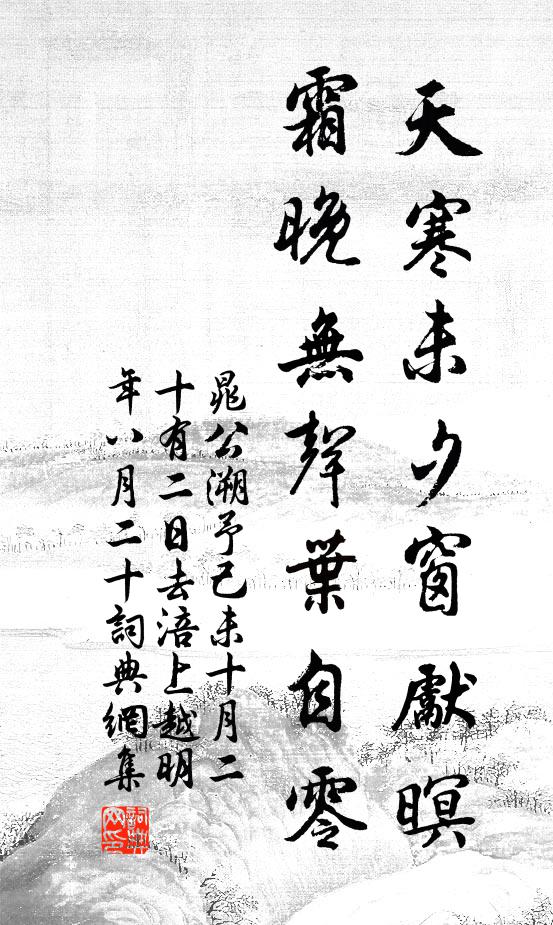 天寒未夕窗獻暝
霜晚無聲葉自零
晁公溯予己未十月二
十有二日去涪上越明
年八月二十詞典網集